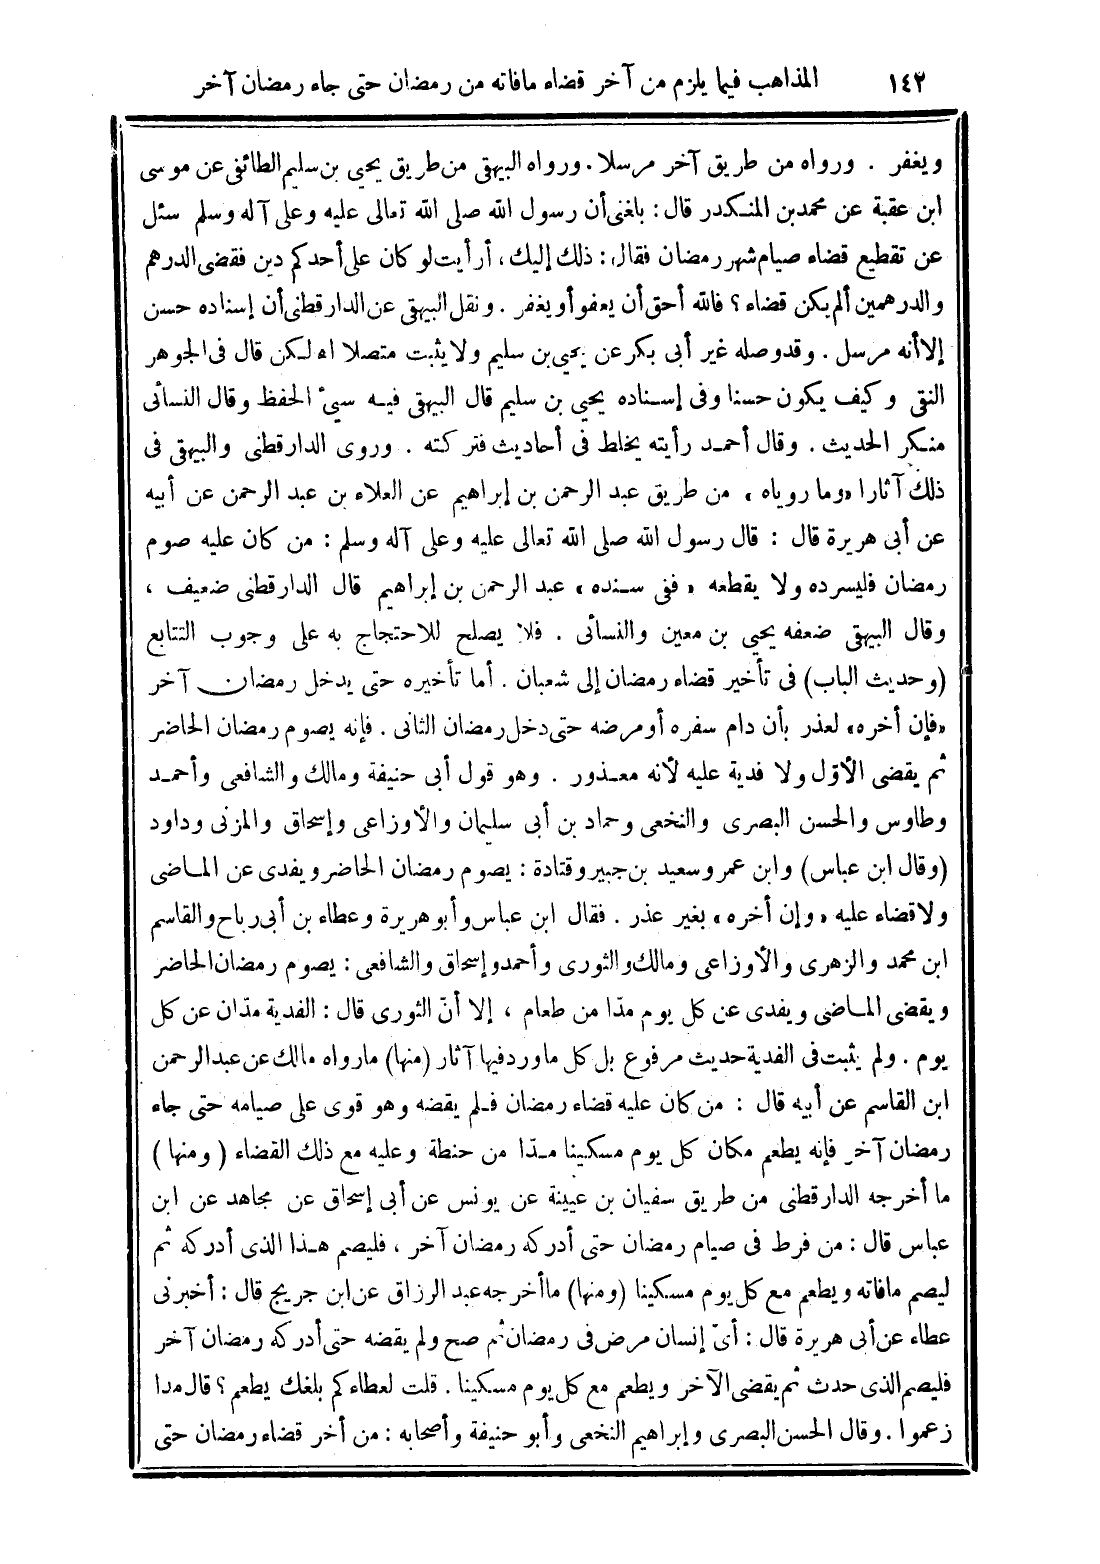 ١٤٢ المذاهب فيما يلزم من آخر قضاء مافاته من رمضان حتى جاء رمضان آخر
ويغفر . ورواه من طريق آخر مرسلا . ورواه البيهقى من طريق يحيى بن سليم الطائفى عن موسى
ابن عقبة عن محمد بن المنكدر قال : بلغنى أن رسول الله صلى الله تعالى عليه وعلى آله وسلم سئل
عن تقطيع قضاء صيام شهر رمضان فقال : ذلك إليك ، أرأيت لو كان على أحدكم دين فقضى الدرهم
والدرهمين ألم يكن قضاء ؟ فالله أحق أن يعفو أو يغفر . ونقل البيهقى عن الدارقطنى أن إسناده حسن
إلا أنه مرسل . وقد وصله غير أبى بكر عن يحيى بن سليم ولا يثبت متصلا اه لكن قال فى الجوهر
النقى وكيف يكون حسنا وفى إسناده يحيى بن سليم قال البيهقى فيه سيئ الحفظ وقال النسائى
منكر الحديث . وقال أحمد رأيته يخلط فى أحاديث فتركته . وروى الدارقطنى والبيهقى فى
ذلك آثارا «وما روياه» من طريق عبد الرحمن بن إبراهيم عن العلاء بن عبد الرحمن عن أبيه
عن أبى هريرة قال : قال رسول الله صلى الله تعالى عليه وعلى آله وسلم : من كان عليه صوم
رمضان فليسرده ولا يقطعه « ففى سنده » عبد الرحمن بن إبراهيم قال الدارقطنى ضعيف ،
وقال البيهقى ضعفه يحيى بن معين والنسائى . فلا يصلح للاحتجاج به على وجوب التتابع
(وحديث الباب) فى تأخير قضاء رمضان إلى شعبان . أما تأخيره حتى يدخل رمضان آخر
«فإن أخره» لعذر بأن دام سفره أو مرضه حتى دخل رمضان الثانى . فإنه يصوم رمضان الحاضر
ثم يقضى الأوّل ولا فدية عليه لأنه معذور . وهو قول أبى حنيفة ومالك والشافعى وأحمد
وطاوس والحسن البصرى والنخعى وحماد بن أبى سليمان والأوزاعى وإسحاق والمزنى وداود
(وقال ابن عباس) وابن عمر وسعيد بن جبير وقتادة : يصوم رمضان الحاضر ويفدى عن الماضى
ولا قضاء عليه «وإن أخره» بغير عذر . فقال ابن عباس وأبو هريرة وعطاء بن أبى رباح والقاسم
ابن محمد والزهرى والأوزاعى ومالك والثورى وأحمد وإسحاق والشافعى : يصوم رمضان الحاضر
ويقضى الماضى ويفدى عن كل يوم مدّا من طعام ، إلا أنّ الثورى قال : الفدية مدّان عن كل
يوم . ولم يثبت فى الفدية حديث مرفوع بل كل ما ورد فيها آثار (منها) مارواه مالك عن عبد الرحمن
ابن القاسم عن أبيه قال : من كان عليه قضاء رمضان فلم يقضه وهو قوى على صيامه حتى جاء
رمضان آخر فإنه يطعم مكان كل يوم مسكينا مدّا من حنطة وعليه مع ذلك القضاء ( ومنها )
ما أخرجه الدارقطنى من طريق سفيان بن عيينة عن يونس عن أبى إسحاق عن مجاهد عن ابن
عباس قال : من فرط فى صيام رمضان حتى أدركه رمضان آخر ، فليصم هذا الذى أدركه ثم
ليصم مافاته ويطعم مع كل يوم مسكينا (ومنها) ما أخرجه عبد الرزاق عن ابن جريج قال : أخبرنى
عطاء عن أبى هريرة قال : أىّ إنسان مرض فى رمضان ثم صح ولم يقضه حتى أدركه رمضان آخر
فليصم الذى حدث ثم يقضى الآخر ويطعم مع كل يوم مسكينا . قلت لعطاء كم بلغك يطعم ؟ قال مدا
زعموا . وقال الحسن البصرى وإبراهيم النخعى وأبو حنيفة وأصحابه : من أخر قضاء رمضان حتى